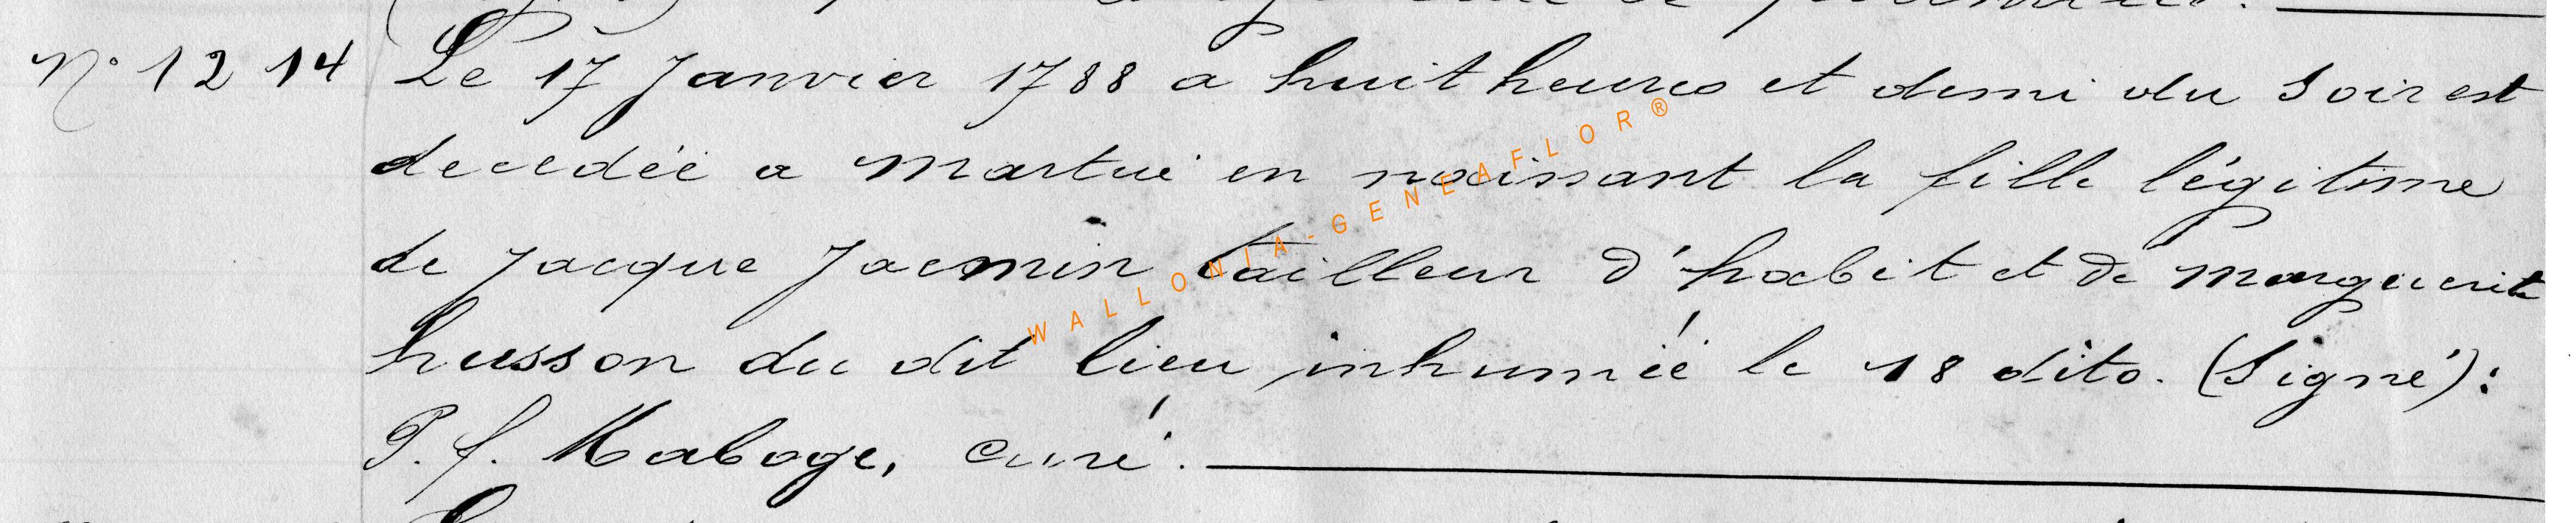 N° 1214 Le 17 Janvier 1788 a huit heures et demi du soir est
decedée a Martué en naissant la fille légitime
de Jacque Jacmin tailleur d'habit et de Marguerite
husson du dit lieu inhumée le 18 dito. (Signé):
P. f. Kaboge, curé.
WALLONIA-GENEAFLOR®